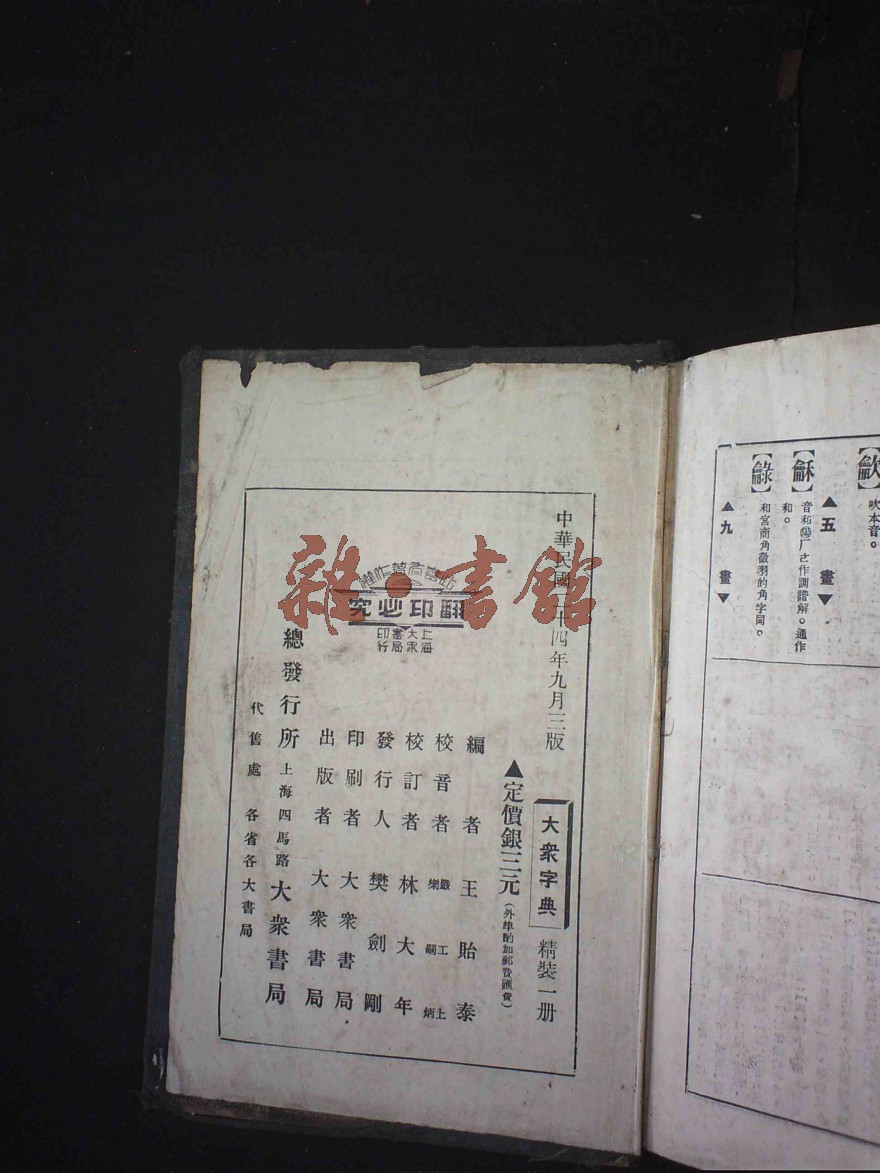 歙
吹本音。
▲五畫▼
龢
音和陽厂古作調諧解。通作
和。
▲九畫▼
和宮商角徵羽的角字同。
中華民國二十四年九月三版
大衆字典 精裝一册
▲定價銀三元(外埠酌加郵費匯費)
編者 王貽泰
校音者 嚴工上
樂嗣炳
校訂者 林大年
發行人 樊劍剛
印刷者 大衆書局
出版者 大衆書局
總發行所 上海四馬路 大衆書局
代售處 各省各大書局
此書有著作權
翻印必究
上海
大衆
書局
印行
雜·書館